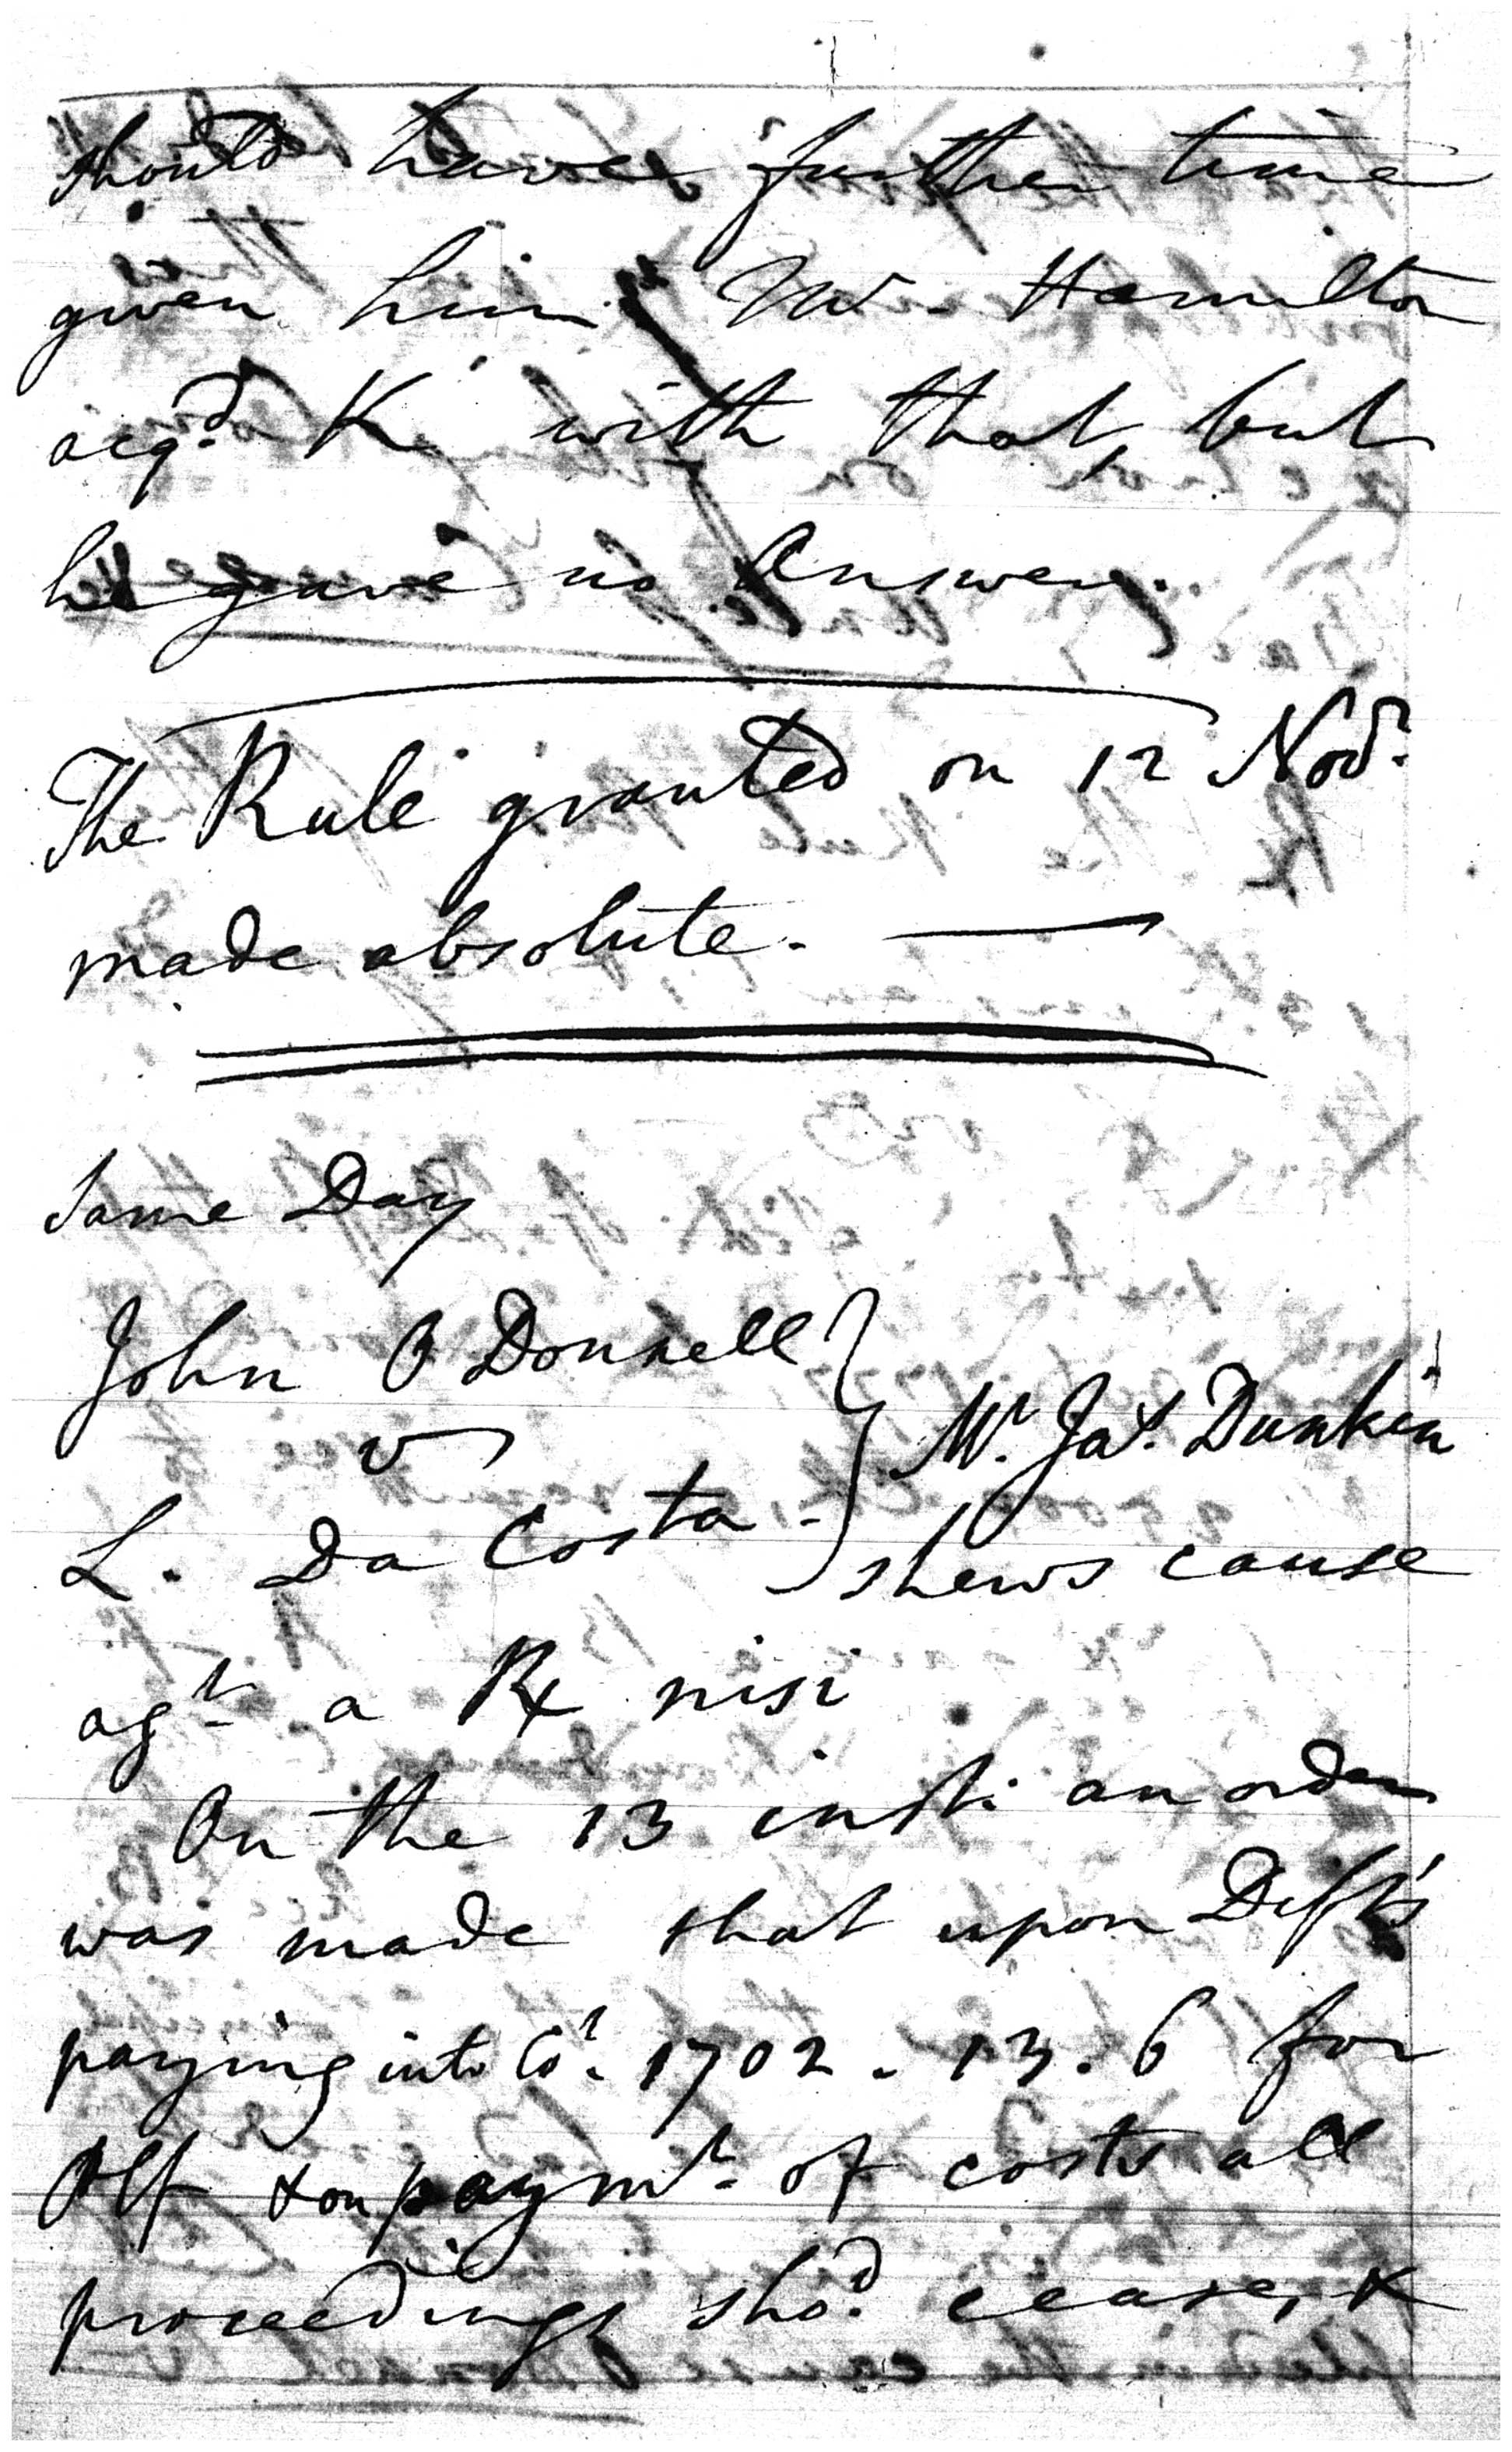 should have further time
given him. Mr Hamilton
acqd. K with that, but
he gave no Answer.
The Rule granted on 12 Novr.
made absolute.
Same Day
John O Donnell
vs
L. Da Costa
Mr. Jas. Dunkin
shews cause
agt. a R nisi
On the 13 inst. an order
was made that upon Deft's
paying into Ct. 1702 . 13 . 6 for
Plf & on paymt. of costs all
proceedings shod. cease, &